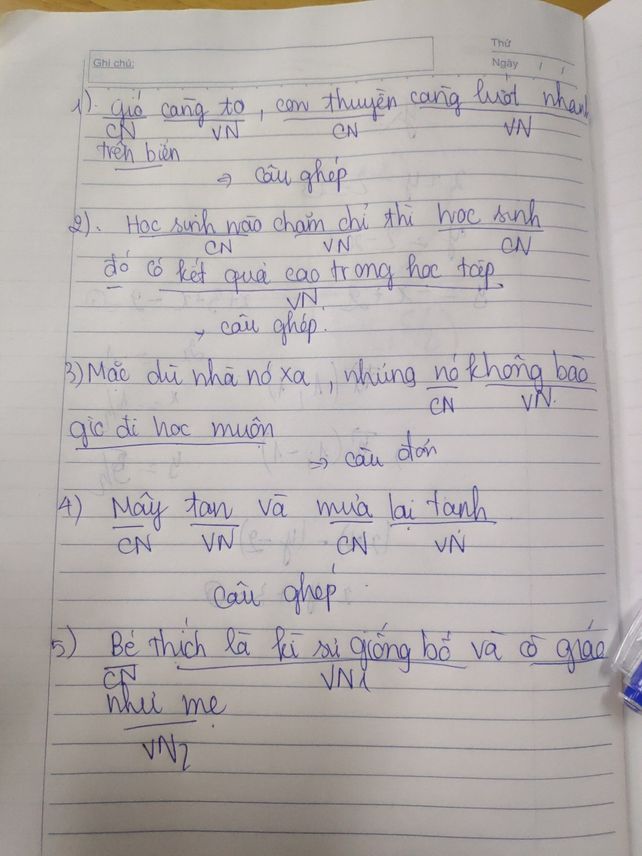 Ghi chú:
Thứ
Ngày / /
1). Gió càng to, con thuyền càng lướt nhanh
CN VN CN VN
trên biển
⇒ câu ghép
2). Học sinh nào chăm chỉ thì học sinh
CN VN CN
đó có kết quả cao trong học tập
VN
→ câu ghép.
3) Mặc dù nhà nó xa, nhưng nó không bao
CN VN.
giờ đi học muộn
⇒ câu đơn
4) Mây tan và mưa lại tạnh
CN VN CN VN
câu ghép
5) Bé thích là kĩ sư giống bố và cô giáo
CN VN1
như mẹ
VN2